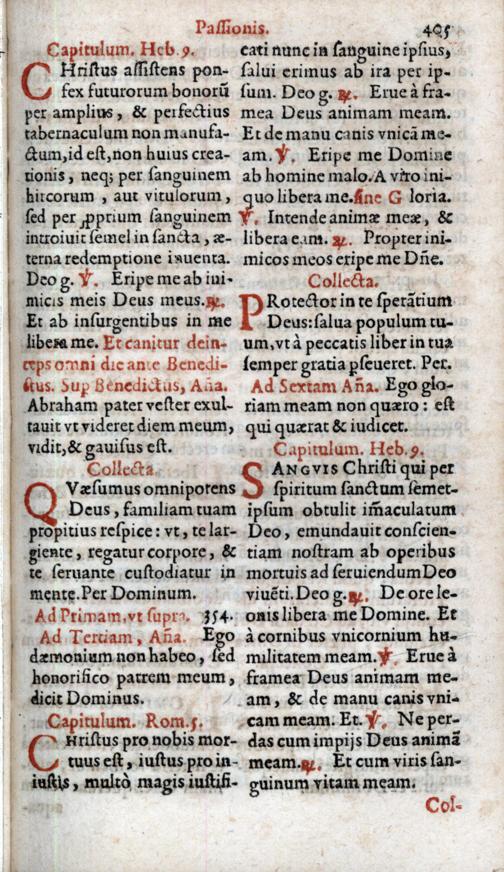 Passionis. 405
Capitulum. Heb. 9.
CHristus assistens pon-
fex futurorum bonorũ
per amplius, & perfectius
tabernaculum non manufa-
ctum, id est, non huius crea-
tionis, neq; per sanguinem
hircorum, aut vitulorum,
sed per ꝓprium sanguinem
introiuit semel in sancta, æ-
terna redemptione inuenta.
Deo g. ℣. Eripe me ab ini-
micis meis Deus meus. ℟.
Et ab insurgentibus in me
libera me. Et canitur dein-
ceps omni die ante Benedi-
ctus. Sup Benedictus, Aña.
Abraham pater vester exul-
tauit vt videret diem meum,
vidit, & gauisus est.
Collecta.
QVæsumus omnipotens
Deus, familiam tuam
propitius respice: vt, te lar-
giente, regatur corpore, &
te seruante custodiatur in
mente. Per Dominum.
Ad Primam, vt supra. 354.
Ad Tertiam, Aña. Ego
dæmonium non habeo, sed
honorifico patrem meum,
dicit Dominus.
Capitulum. Rom. 5.
CHristus pro nobis mor-
tuus est, iustus pro in-
iustis, multò magis iustifi-
cati nunc in sanguine ipsius,
salui erimus ab ira per ip-
sum. Deo g. ℟. Erue à fra-
mea Deus animam meam.
Et de manu canis vnicã me-
am. ℣. Eripe me Domine
ab homine malo. A viro ini-
quo libera me. sine G loria.
℣. Intende animæ meæ, &
libera eam. ℟. Propter ini-
micos meos eripe me Dñe.
Collecta.
PRotector in te sperãtium
Deus: salua populum tu-
um, vt à peccatis liber in tua
semper gratia pseueret. Per.
Ad Sextam Aña. Ego glo-
riam meam non quæro: est
qui quærat & iudicet.
Capitulum. Heb. 9.
SANGVIS Christi qui per
spiritum sanctum semet-
ipsum obtulit im̃aculatum
Deo, emundauit conscien-
tiam nostram ab operibus
mortuis ad seruiendum Deo
viuẽti. Deo g. ℟. De ore le-
onis libera me Domine. Et
à cornibus vnicornium hu-
militatem meam. ℣. Erue à
framea Deus animam me-
am, & de manu canis vni-
cam meam. Et. ℣. Ne per-
das cum impijs Deus animã
meam. ℟. Et cum viris san-
guinum vitam meam.
Col-